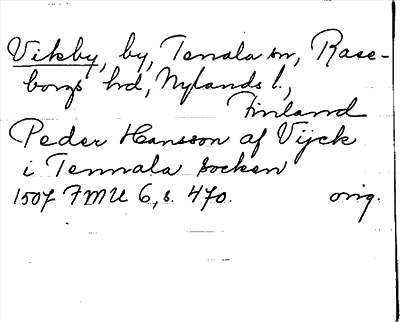 Vikby, by, Tenala sn, Rase-
borgs hd, Nylands l.,
Finland
Peder Hansson af Vijck
i Tennala socken
1507 FMU 6, s. 470. orig.